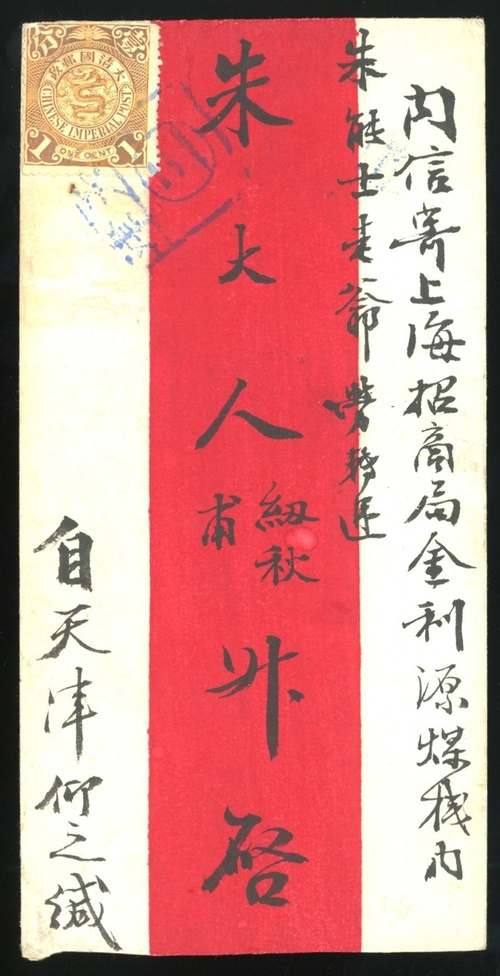 內信寄上海招商局金利源煤棧內
朱能士老翁勞轉
朱大人
紉秋
甫
升啟
自天津仰之緘
壹分
大清國郵政
CHINESE IMPERIAL POST
1 ONE CENT 1